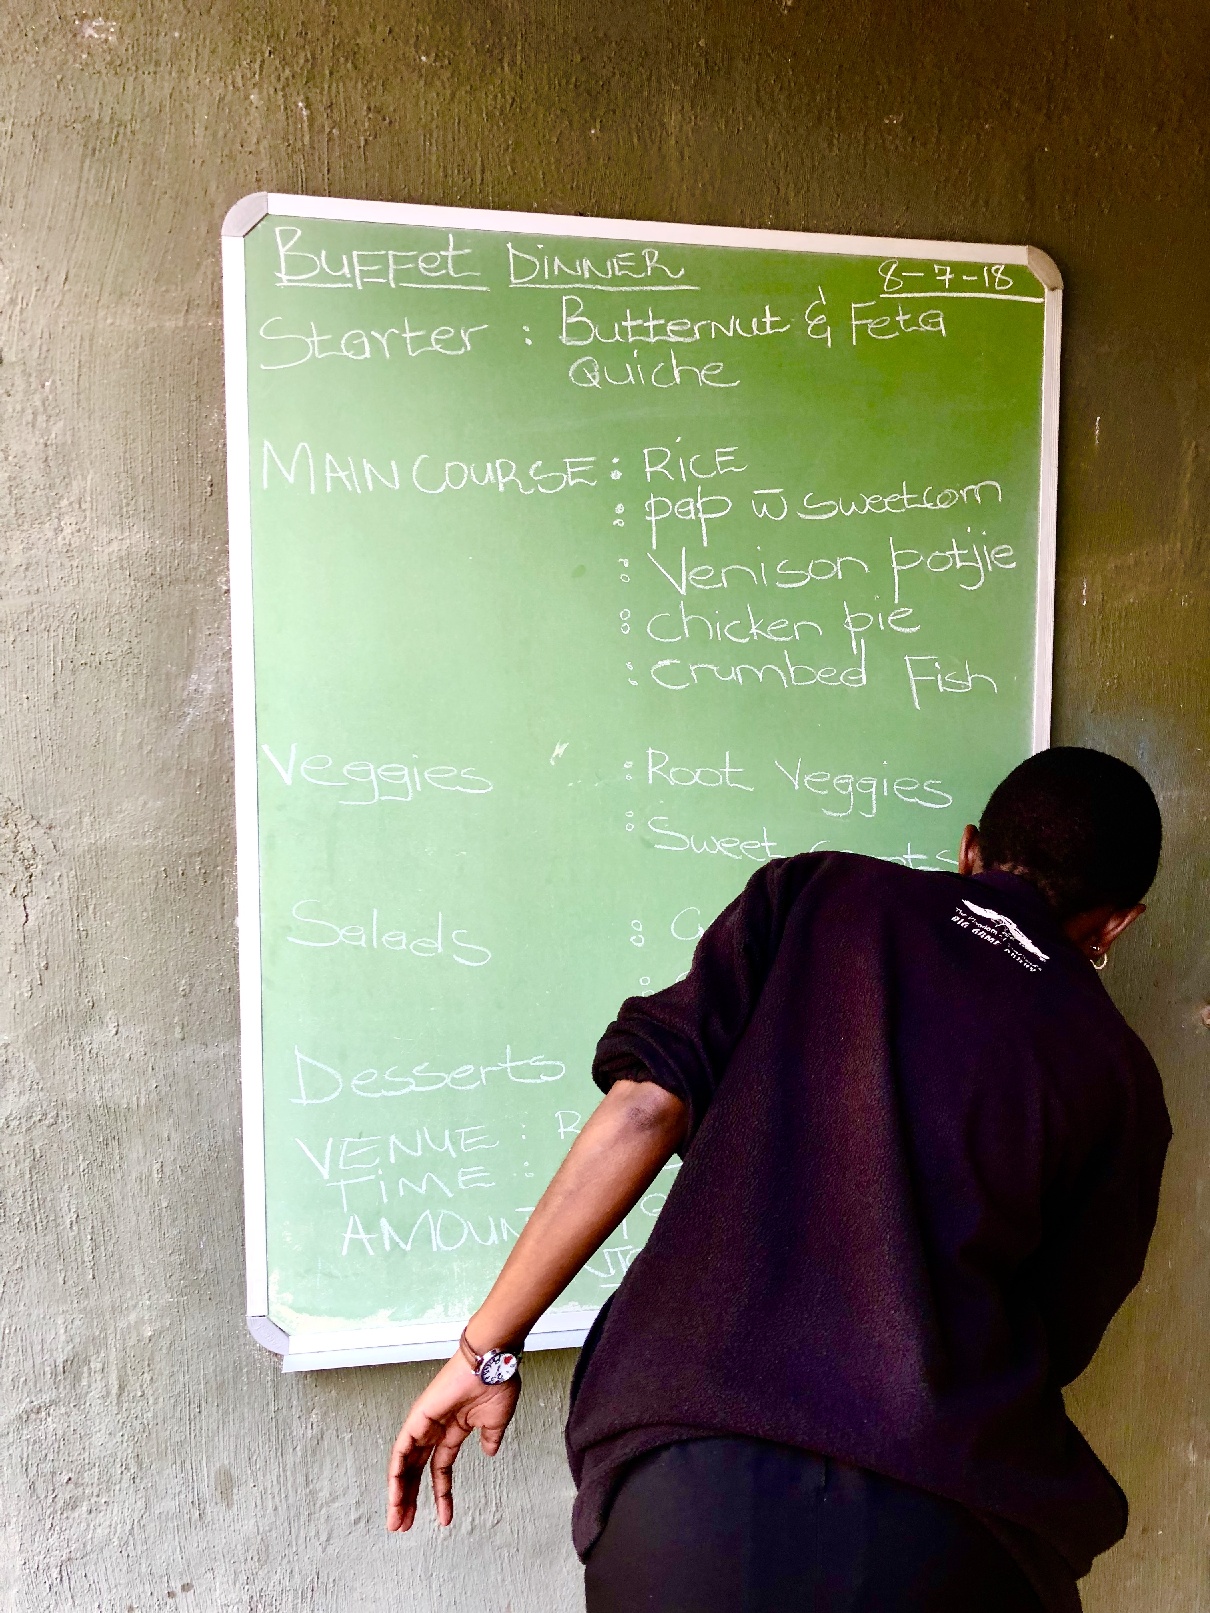 BUFFet DINNER 8-7-18
Starter : Butternut & Feta
Quiche
MAIN COURSE : RICE
: pap w̅ sweetcorn
: Venison potjie
: chicken pie
: crumbed Fish
Veggies : Root Veggies
: Sweet
Salads :
Desserts
VENUE :
TIME :
BIG GAME